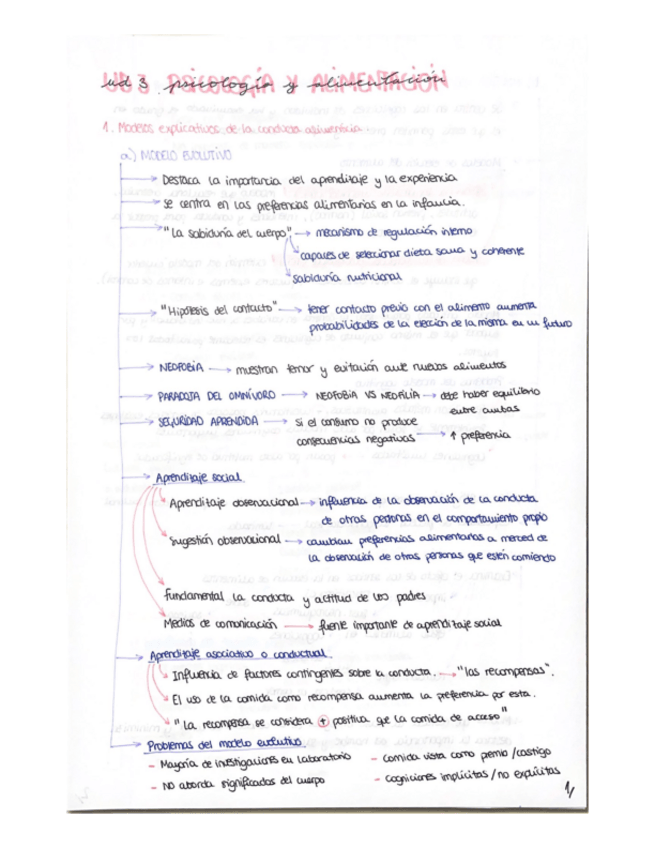 ud 3 psicología y alimentación
1. Modelos explicativos de la conducta alimenticia
a) MODELO EVOLUTIVO
→ Destaca la importancia del aprendizaje y la experiencia
→ se centra en las preferencias alimentarias en la infancia.
→ "La sabiduría del cuerpo" → mecanismo de regulación interno
capaces de seleccionar dieta sana y coherente
sabiduría nutricional
→ "Hipótesis del contacto" → tener contacto previo con el alimento aumenta
probabilidades de la elección de la misma en un futuro
→ NEOFOBIA → muestran temor y evitación ante nuevos alimentos
→ PARADOJA DEL OMNÍVORO → NEOFOBIA VS NEOFILIA → debe haber equilibrio
entre ambas
→ SEGURIDAD APRENDIDA → si el consumo no produce
consecuencias negativas → ↑ preferencia
→ Aprendizaje social
Aprendizaje observacional → influencia de la observación de la conducta
de otras personas en el comportamiento propio
Sugestión observacional → cambian preferencias alimentarias a merced de
la observación de otras personas que estén comiendo
fundamental la conducta y actitud de los padres
Medios de comunicación → fuente importante de aprendizaje social
→ Aprendizaje asociativo o conductual.
Influencia de factores contingentes sobre la conducta. → "las recompensas".
El uso de la comida como recompensa aumenta la preferencia por esta.
"La recompensa se considera + positiva que la comida de acceso"
→ Problemas del modelo evolutivo.
- Mayoría de investigaciones en laboratorio - comida vista como premio/castigo
- No aborda significados del cuerpo - cogniciones implícitas/no explícitas
1/